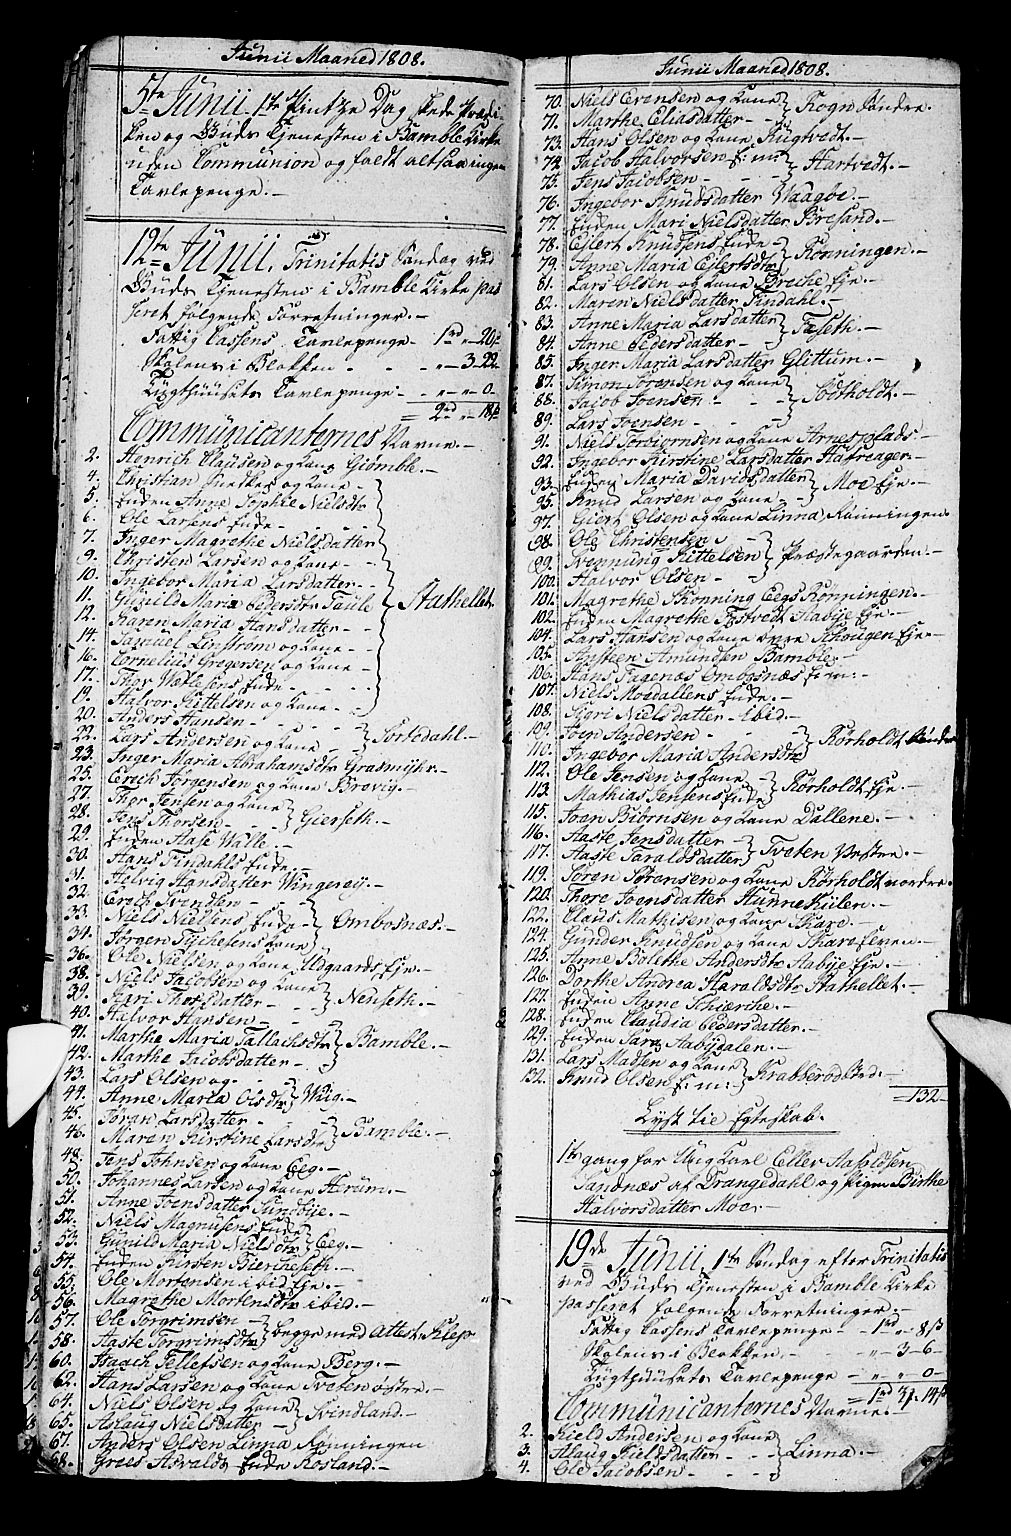 Junii Maaned 1808.
5te Junii 1te Pintze Dag skede Prædi-
ken og Guds Tienesten i Bamble Kirke
uden Communion og faldt altsaa ingen
Tavlepenge. -
12te Junii, Trinitatis Søndag ved
Guds Tienesten i Bamble Kirke pas
seret følgende Forretninger. -
Fattig Cassens Tavlepenge - 1rd " 20ß
Skolens i Blokken - - - " - 3 - 22
Tugthuusets Tavlepenge - " - " - 0 -
= 2rd " 18ß
Communicanternes Navne. -
2. Henrich Clausen og Kone Giømble. -
4. Christian og Kone -
5. Enken Anne Sophie Nielsdtr
6. Ole Larsens Enke -
7. Inger Magrethe Nielsdatter
9. Christen Larsen og Kone -
10. Ingebor Maria Larsdatter -
11. Gunild Maria Pedersdtr Taule } Stathellet
12. Karen Maria Hansdatter -
14. Samuel Linstrøm og Kone -
16. Cornelius Gregersen og Kone
17. Thor Wetlesens Enke -
19. Halvor Kittelsen og Kone -
20. Anders Hansen -
22. Lars Andersen og Kone - } Tortedahl. -
23. Inger Maria Abrahamsdtr Grasmyhr. -
25. Erich Jørgensen og Kone Brevig. -
27. Thor Jensen og Kone
28. Jens Thorsen - } Gierseth. -
29. Enken Aase Walle -
30. Hans Tindahls Enke -
31. Helvig Hansdatter Wingereÿ. -
32. Erich Svendsen -
33. Niels Nielsens Enke } Ombosnæs. -
34. Jørgen Tychesens Kone
36. Ole Nielsen og Kone Udgaards Eje -
38. Niels Jacobsen og Kone
39. Siri Thorsdatter - } Nenseth. -
40. Halvor Hansen -
41. Marthe Maria Tallachsdtr } Bamble. -
42. Marthe Jacobsdatter -
43. Lars Olsen og -
44. Anne Maria Olsdtr } Wiig. -
45. Jøran Larsdatter -
46. Maren Kirstine Larsdtr } Bamble. -
48. Jens Johnsen og Kone Eeg. -
50. Johannes Larsen og Kone Herum. -
51. Anne Joensdatter Sundbÿe. -
52. Niels Magnusens Enke
53. Gunild Maria Nielsdtr } Eeg. -
54. Enken Kirsten Bierkeseth. -
55. Ole Mortensen ibid Eje. -
56. Magrethe Mortensdtr ibid. -
57. Ole Torgrimsen -
58. Aaste Torgrimsdtr } begge med Attest
60. Isaach Tellefsen og Kone Berg. -
62. Hans Larsen og Kone Tveten østre. -
64. Niels Olsen og Kone -
65. Aslaug Nielsdatter - } Svindland. -
67. Anders Olsen Linna Rønningen
68. Groes Asvalds Enke Rosland. -
Junii Maaned 1808.
70. Niels Evensen og Kone
71. Marthe Eliasdatter - } Rogn Søndre. -
73. Hans Olsen og Kone Rugtvedt. -
74. Jacob Halvorsen f: m: } Hartvedt. -
75. Jens Jacobsen -
76. Ingebor Knudsdatter Waagøe. -
77. Enken Mari Nielsdatter Bresand. -
78. Ejlert Knudsens Enke - } Rønningen. -
79. Anne Maria Ejlertsdtr
81. Lars Olsen og Kone Grethe Eje. -
82. Maren Nielsdatter Tindahl. -
83. Anne Maria Larsdatter } Fæseth. -
84. Anne Pedersdatter -
85. Inger Maria Larsdatter Glittum. -
87. Simon Sørensen og Kone
88. Jacob Joensen - } Todtholdt. -
89. Lars Joensen -
91. Niels Torbiørnsen og Kone Arnesplads -
92. Ingebor Kirstine Larsdatter Hafreager -
93. Enken Maria Davidsdatter } Moe Eje. -
95. Knud Larsen og Kone -
97. Giert Olsen og Kone Linna Rønningen
98. Ole Christensen -
99. Svennung Kittelsen } Præstegaarden. -
100. Halvor Olsen -
101. Magrethe Skonning Eegs Rønningen. -
102. Enken Magrethe Tostvedt Aabÿe Eje. -
104. Lars Hansen og Kone øvre Schougen Eje -
105. Anstien Amundsen Bamble. -
106. Hans Fagenæs Ombosnæs f: m: -
107. Niels Moedallens Enke. -
108. Sigri Nielsdatter ibid. -
109. Joen Andersen -
110. Ingebor Maria Andersdtr } Rørholdt Søndre
112. Ole Jensen og Kone
113. Mathias Jensens Enke } Rørholdt Eje. -
115. Joen Biørnsen og Kone Dallene. -
116. Aaste Jensdatter -
117. Aaste Taraldsdatter } Tveten Vestre. -
119. Søren Sørensen og Kone Rørholdt nordre -
120. Thore Joensdatter Hunnekiilen. -
122. Claus Mathisen og Kone Skare. -
124. Gunder Knudsen og Kone Skarefeven. -
125. Anne Bolethe Andersdtr Aabÿe Eje. -
126. Dorthe Andrea Haraldsdtr Stathellet. -
127. Enken Anne Schierike. -
128. Enken Claudia Pedersdatter. -
129. Enken Sara Aabÿdalen. -
131. Lars Madsen og Kone
132. Knud Olsen f: m: } Krabberød Bed: -
= 132 -
Lyst til Egteskab. -
1te gang for Ung Karl Ellef Aasolfsen
Sandnæs af Drangedahl og Pigen Birthe
Halvorsdatter Moe. -
19de Junii, 1te Søndag efter Trinitatis
ved Guds Tienesten i Bamble Kirke
passeret følgende Forretninger. -
Fattig Cassens Tavlepenge - 1rd " - 8ß
Skolens i Blokken - - " - 3 - 6 -
Tugthuusets Tavlepenge - " " - 0 -
= 1rd 3 " 14ß
Communicanternes Navne. -
2. Kield Andersen og Kone
3. Aslaug Kieldsdatter - } Linna. -
4. Ole Jacobsen -